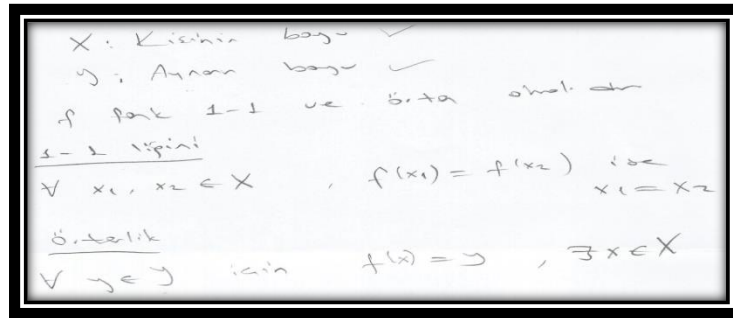 X : Kişinin boyu ✓
y : Aynanın boyu ✓
f fonk 1-1 ve örten olmalıdır
1-1 liğini
∀ x₁, x₂ ∈ X , f(x₁) = f(x₂) ise x₁ = x₂
örtenlik
∀ y ∈ y için f(x) = y , ∃ x ∈ X